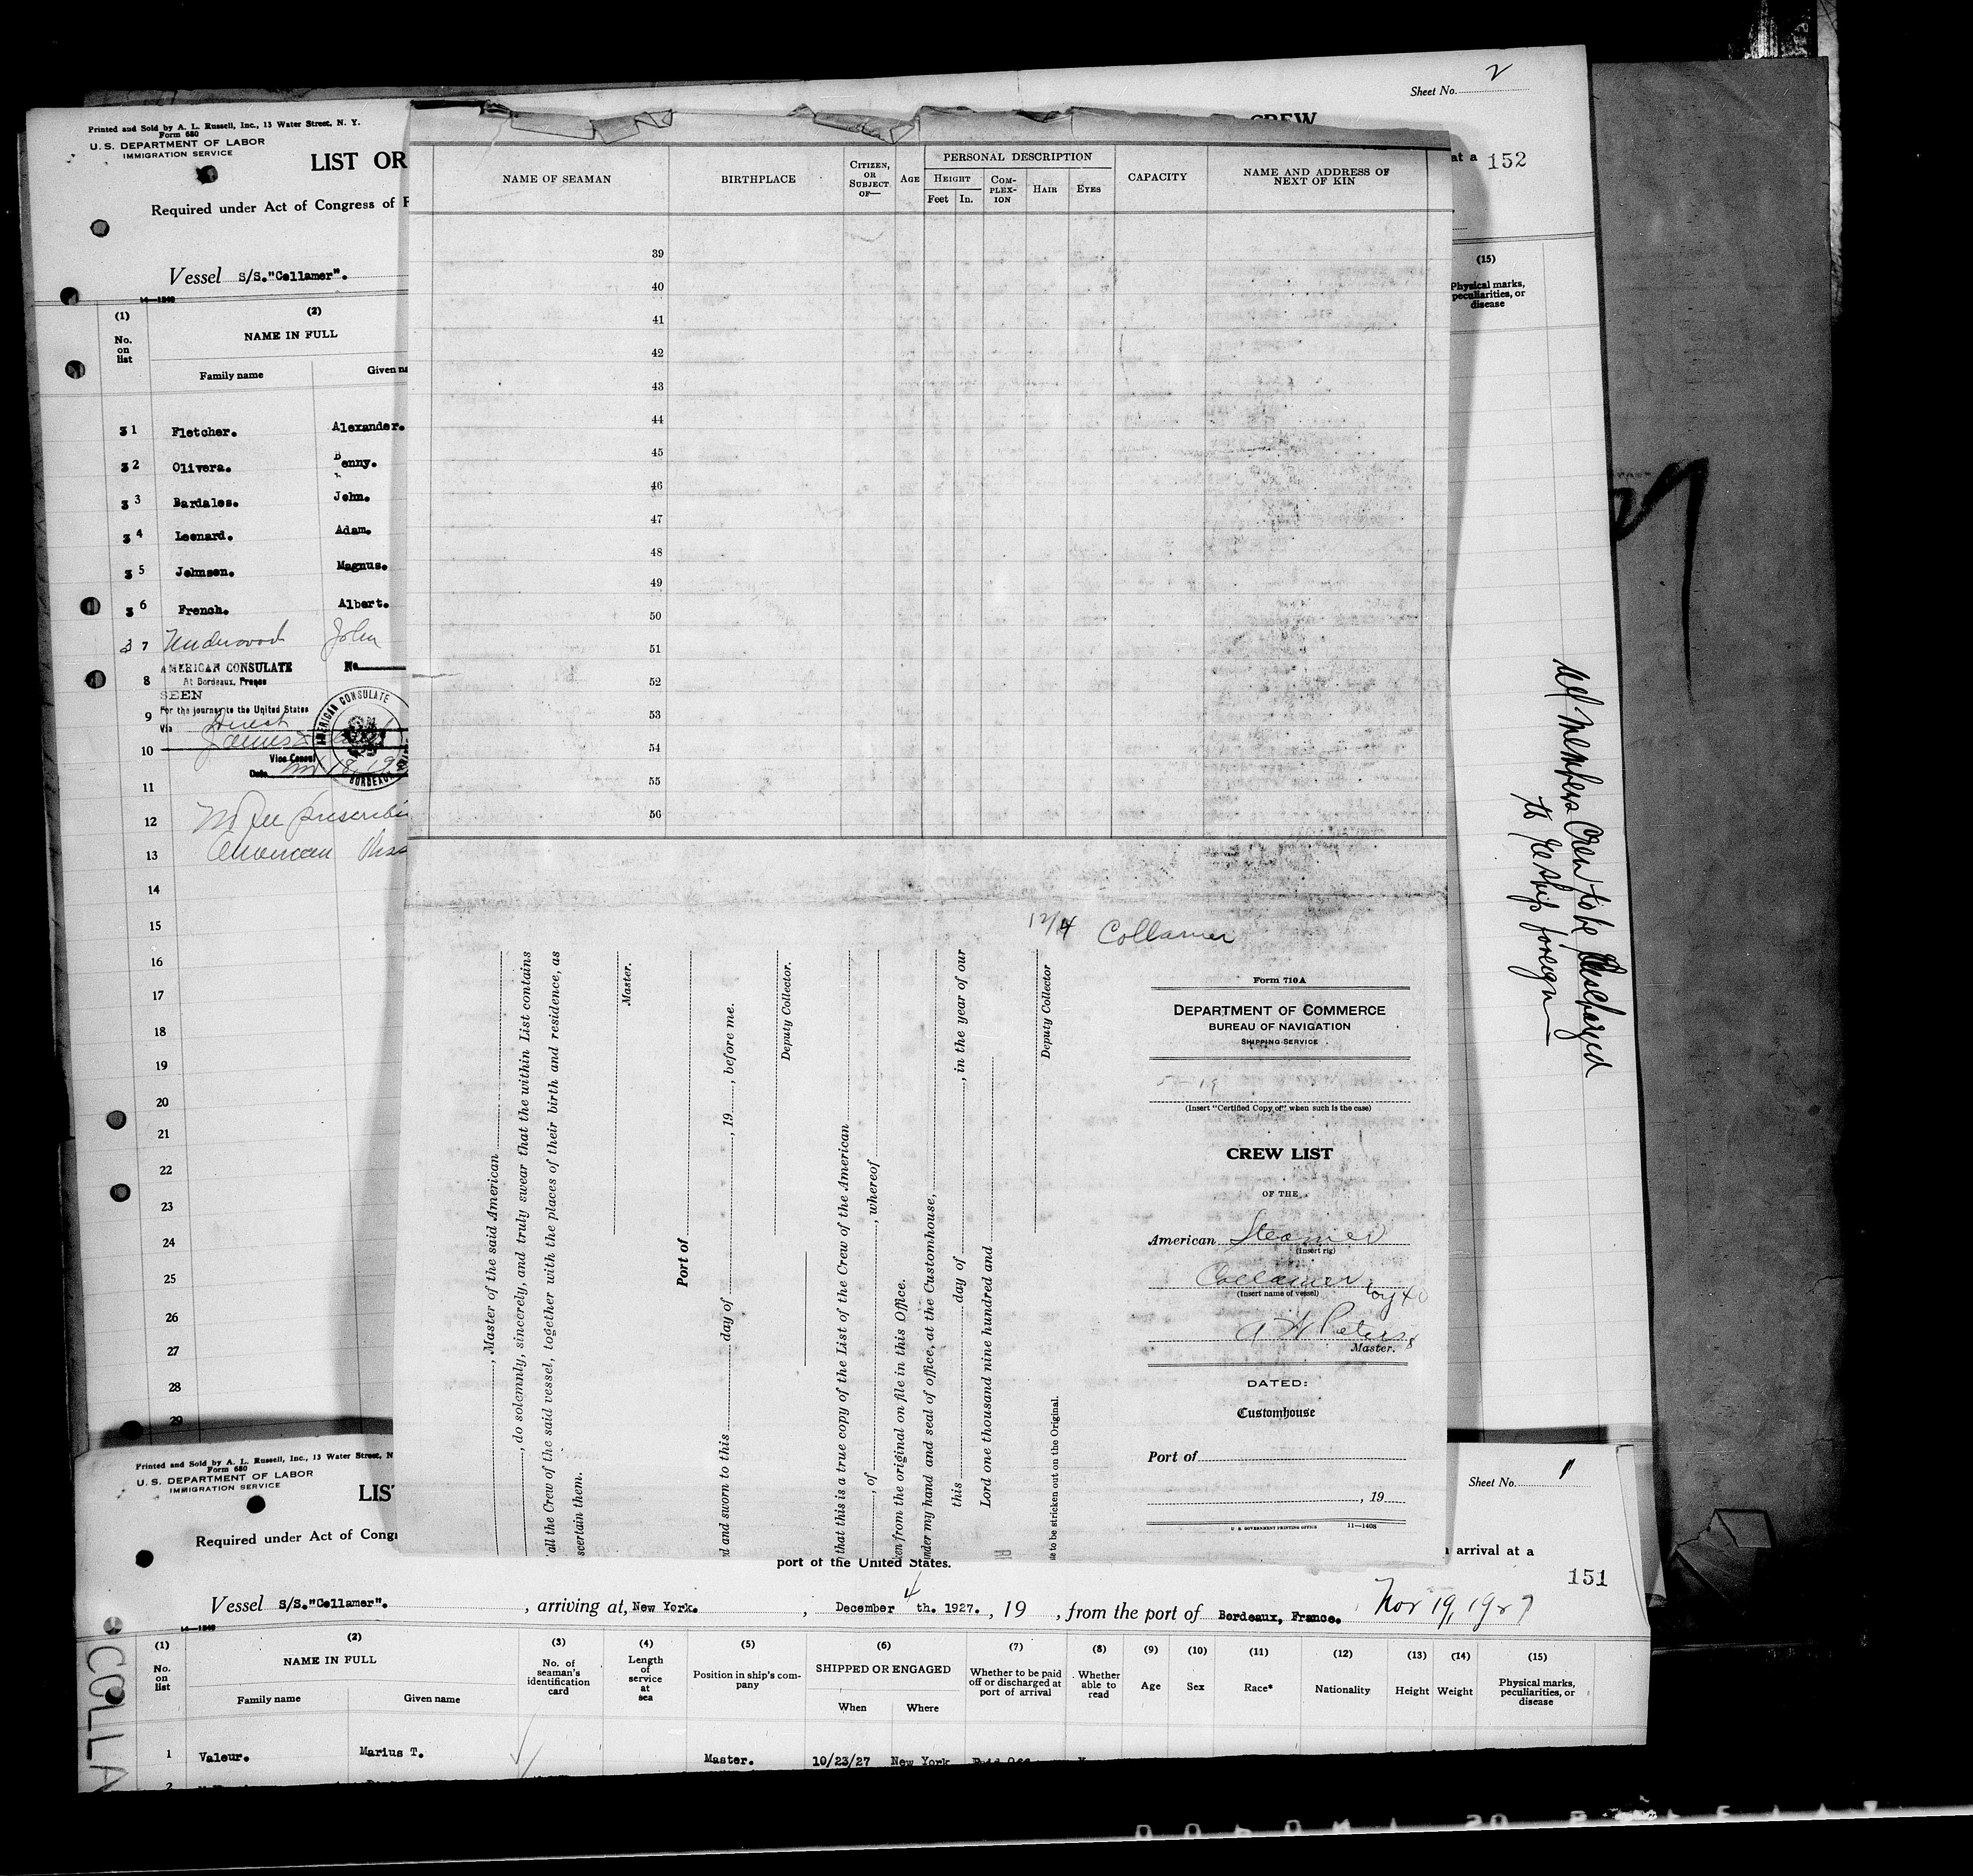 Sheet No. 2
CREW
Printed and Sold by A. L. Russell, Inc., 13 Water Street, N. Y.
Form 680
U. S. DEPARTMENT OF LABOR
IMMIGRATION SERVICE
LIST OR
at a 152
Required under Act of Congress of F
Vessel S/S."Collamer".
14—1240
(1) (2)
No. on list
NAME IN FULL
Family name Given na
(15)
Physical marks, peculiarities, or disease
31 Fletcher. Alexander.
32 Olivera. Benny.
33 Bardales. John.
34 Leonard. Adam.
35 Johnson. Magnus.
36 French. Albert.
37 Underwood John
8
9
10
11
12
13
14
15
16
17
18
19
20
21
22
23
24
25
26
27
28
29
AMERICAN CONSULATE No.
At Bordeaux, France
SEEN
For the journey to the United States
Via Direct
James
Vice Consul
Date Nov 18, 19
AMERICAN CONSULATE
BORDEAUX
No fee prescribe
American
All Members Crew to be Discharged
to Reship foreign
NAME OF SEAMAN
BIRTHPLACE
CITIZEN, OR SUBJECT OF—
AGE
PERSONAL DESCRIPTION
HEIGHT
Feet In.
COM-PLEX-ION
HAIR
EYES
CAPACITY
NAME AND ADDRESS OF NEXT OF KIN
39
40
41
42
43
44
45
46
47
48
49
50
51
52
53
54
55
56
12/4 Collamer
, Master of the said American
, do solemnly, sincerely, and truly swear that the within List contains
all the Crew of the said vessel, together with the places of their birth and residence, as
scertain them.
Master.
Port of
d and sworn to this day of , 19 , before me.
Deputy Collector.
that this is a true copy of the List of the Crew of the American
, of , whereof
ken from the original on file in this Office.
nder my hand and seal of office, at the Customhouse,
this day of , in the year of our
Lord one thousand nine hundred and
Deputy Collector
to be stricken out on the Original.
Form 710 A
DEPARTMENT OF COMMERCE
BUREAU OF NAVIGATION
SHIPPING SERVICE
(Insert "Certified Copy of" when such is the case)
CREW LIST
OF THE
American Steamer
(Insert rig)
Collamer
(Insert name of vessel)
A W Peters
Master.
DATED:
Customhouse
Port of
, 19
U. S. GOVERNMENT PRINTING OFFICE 11—1408
Printed and Sold by A. L. Russell, Inc., 13 Water Street, N
Form 680
U. S. DEPARTMENT OF LABOR
IMMIGRATION SERVICE
LIS
Sheet No. 1
Required under Act of Congr
arrival at a
port of the United States.
151
Vessel S/S."Collamer". , arriving at, New York. , December 4 th. 1927. , 19 , from the port of Bordeaux, France. Nov 19, 1927
14—1240
(1) (2) (3) (4) (5) (6) (7) (8) (9) (10) (11) (12) (13) (14) (15)
No. on list
NAME IN FULL
Family name Given name
No. of seaman's identification card
Length of service at sea
Position in ship's com-pany
SHIPPED OR ENGAGED
When Where
Whether to be paid off or discharged at port of arrival
Whether able to read
Age Sex Race* Nationality Height Weight
Physical marks, peculiarities, or disease
1 Valeur. Marius T. Master. 10/23/27 New York Paid Off
2
COLLA